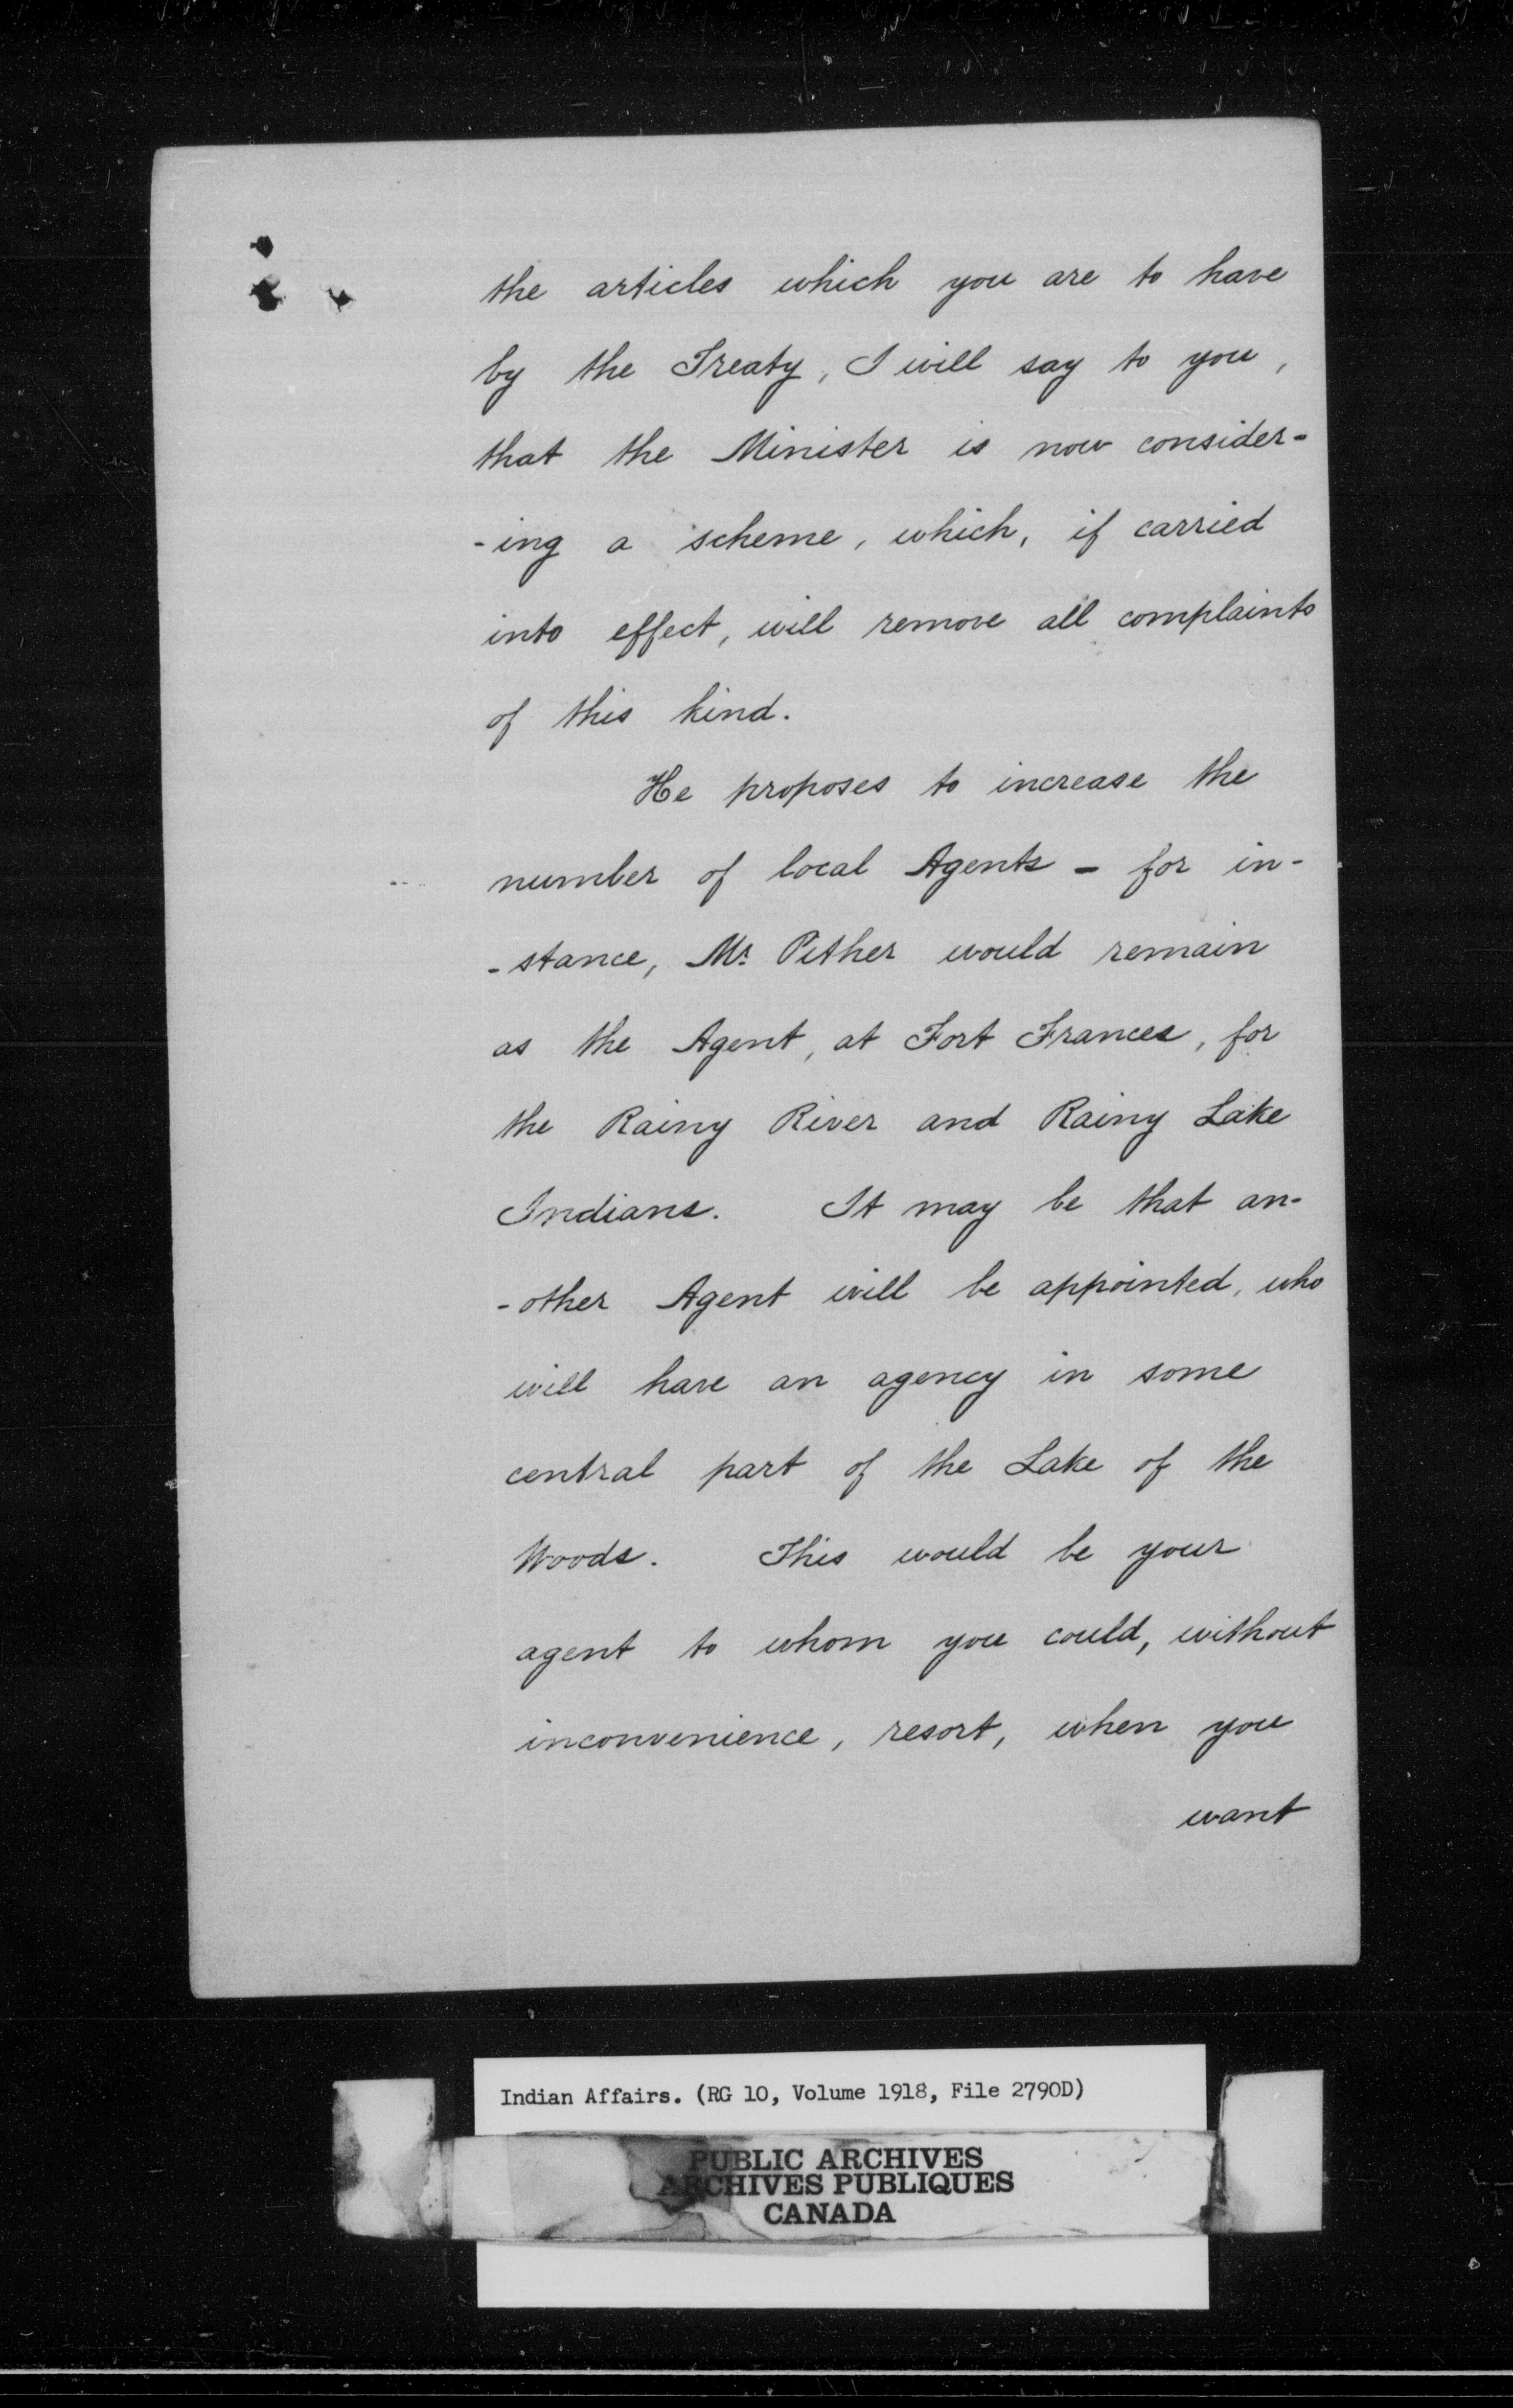 the articles which you are to have
by the Treaty, I will say to you,
that the Minister is now consider-
-ing a scheme, which, if carried
into effect, will remove all complaints
of this kind.
He proposes to increase the
number of local Agents - for in-
-stance, Mr. Pither would remain
as the Agent, at Fort Frances, for
the Rainy River and Rainy Lake
Indians. It may be that an-
-other Agent will be appointed, who
will have an agency in some
central part of the Lake of the
Woods. This would be your
agent to whom you could, without
inconvenience, resort, when you
want
Indian Affairs. (RG 10, Volume 1918, File 2790D)
PUBLIC ARCHIVES
ARCHIVES PUBLIQUES
CANADA